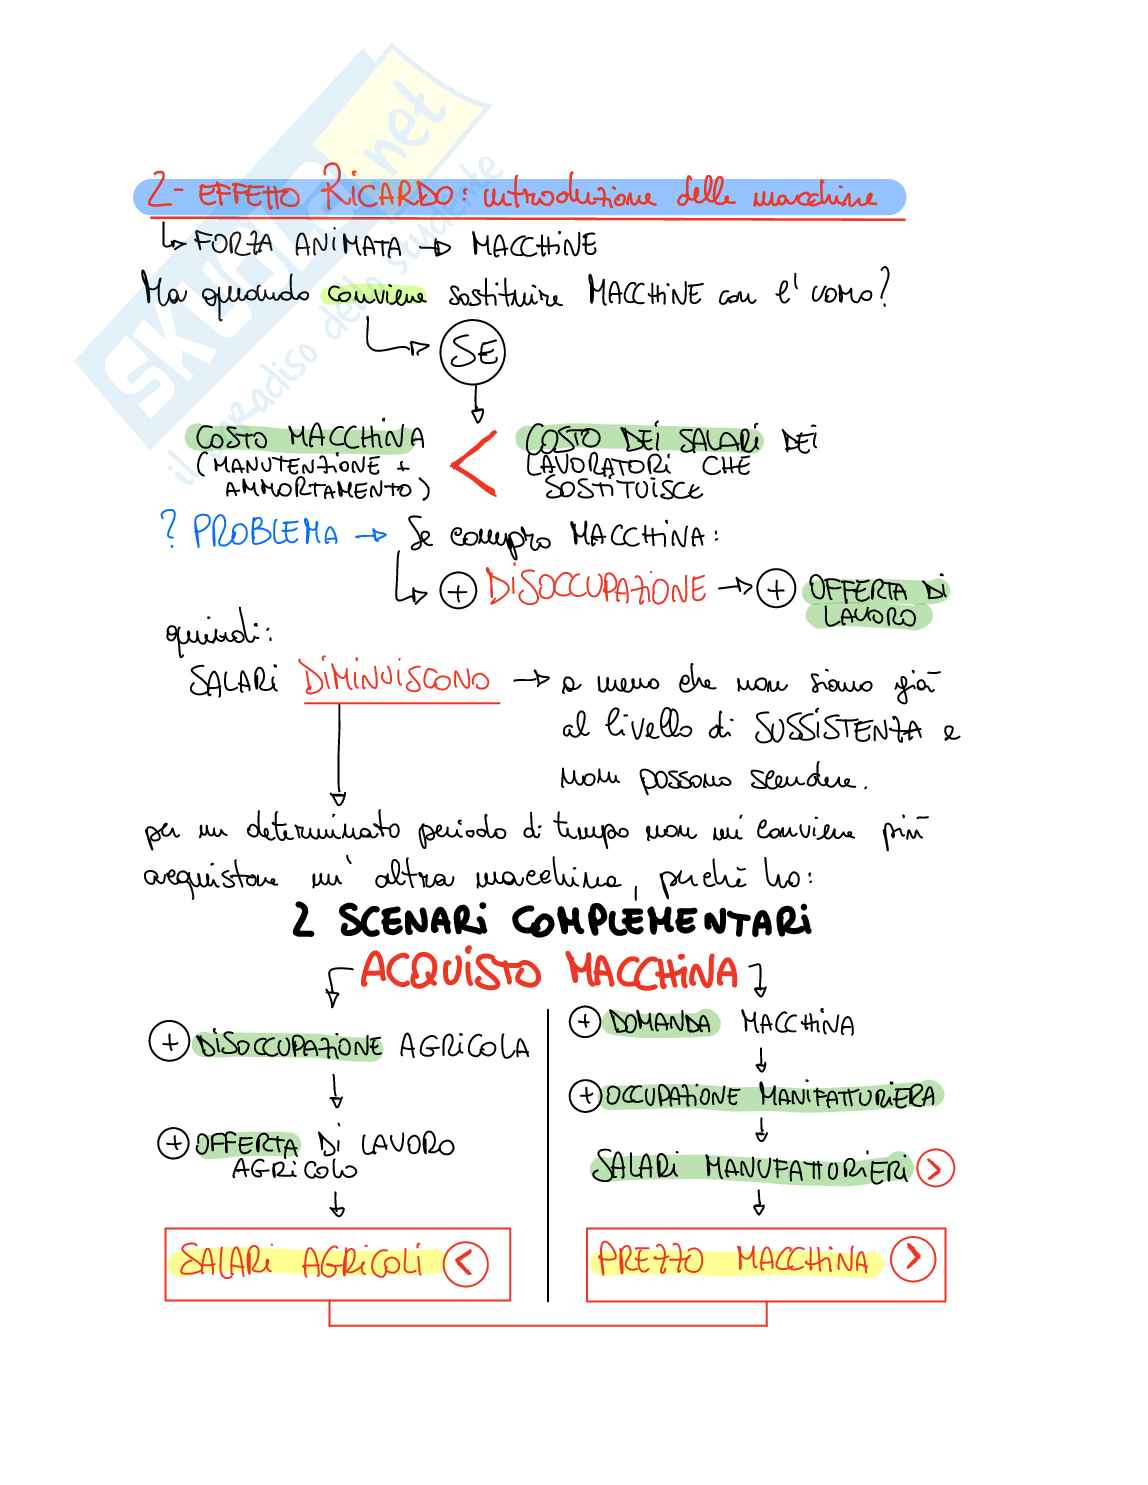 SKUOLA.net
il paradiso dello studente
2- EFFETTO RICARDO: introduzione delle macchine
↳ FORZA ANIMATA → MACCHINE
Ma quando conviene sostituire MACCHINE con l'UOMO?
SE
COSTO MACCHINA < COSTO DEI SALARI DEI
(MANUTENZIONE + LAVORATORI CHE
AMMORTAMENTO) SOSTITUISCE
? PROBLEMA → Se compro MACCHINA:
+ DISOCCUPAZIONE → + OFFERTA DI
LAVORO
quindi:
SALARI DIMINUISCONO → a meno che non siano già
al livello di SUSSISTENZA e
non possono scendere.
per un determinato periodo di tempo non mi conviene più
acquistare un'altra macchina, perché ho:
2 SCENARI COMPLEMENTARI
ACQUISTO MACCHINA
+ DISOCCUPAZIONE AGRICOLA
+ OFFERTA DI LAVORO
AGRICOLO
SALARI AGRICOLI <
+ DOMANDA MACCHINA
+ OCCUPAZIONE MANIFATTURIERA
SALARI MANUFATTORIERI >
PREZZO MACCHINA >